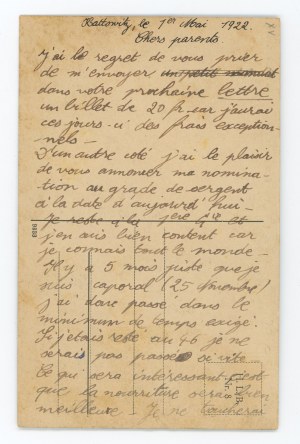 Kattowitz, le 1er Mai 1922
Chers parents
j'ai le regret de vous prier
de m'envoyer un petit mandat
dans votre prochaine lettre
un billet de 20 fr car j'aurai
ces jours-ci des frais exception-
nels -
D'un autre coté j'ai le plaisir
de vous annoncer ma nomina-
tion au grade de sergent
à la date d'aujourd'hui.
Je reste à la 1ere Cie et
j'en suis bien content car
je connais tout le monde -
Il y a 5 mois juste que je
suis caporal (25 Novembre)
j'ai donc passé dans le
minimum de temps exigé.
Si j'étais resté au 46 je ne
serais pas passé si vite
Ce qui sera intéressant c'est
que la nourriture sera bien
meilleure - Je ne toucherai